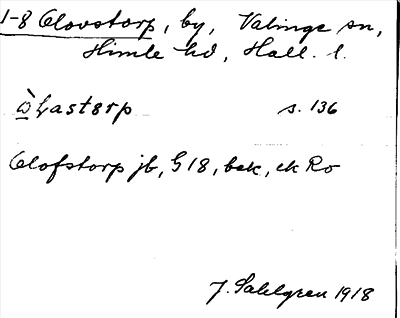 1-8 Olovstorp, by, Valinge sn,
Himle hd, Hall. l.
s. 136
Olofstorp jb, G 18, bek, ek Ro
J. Sahlgren 1918